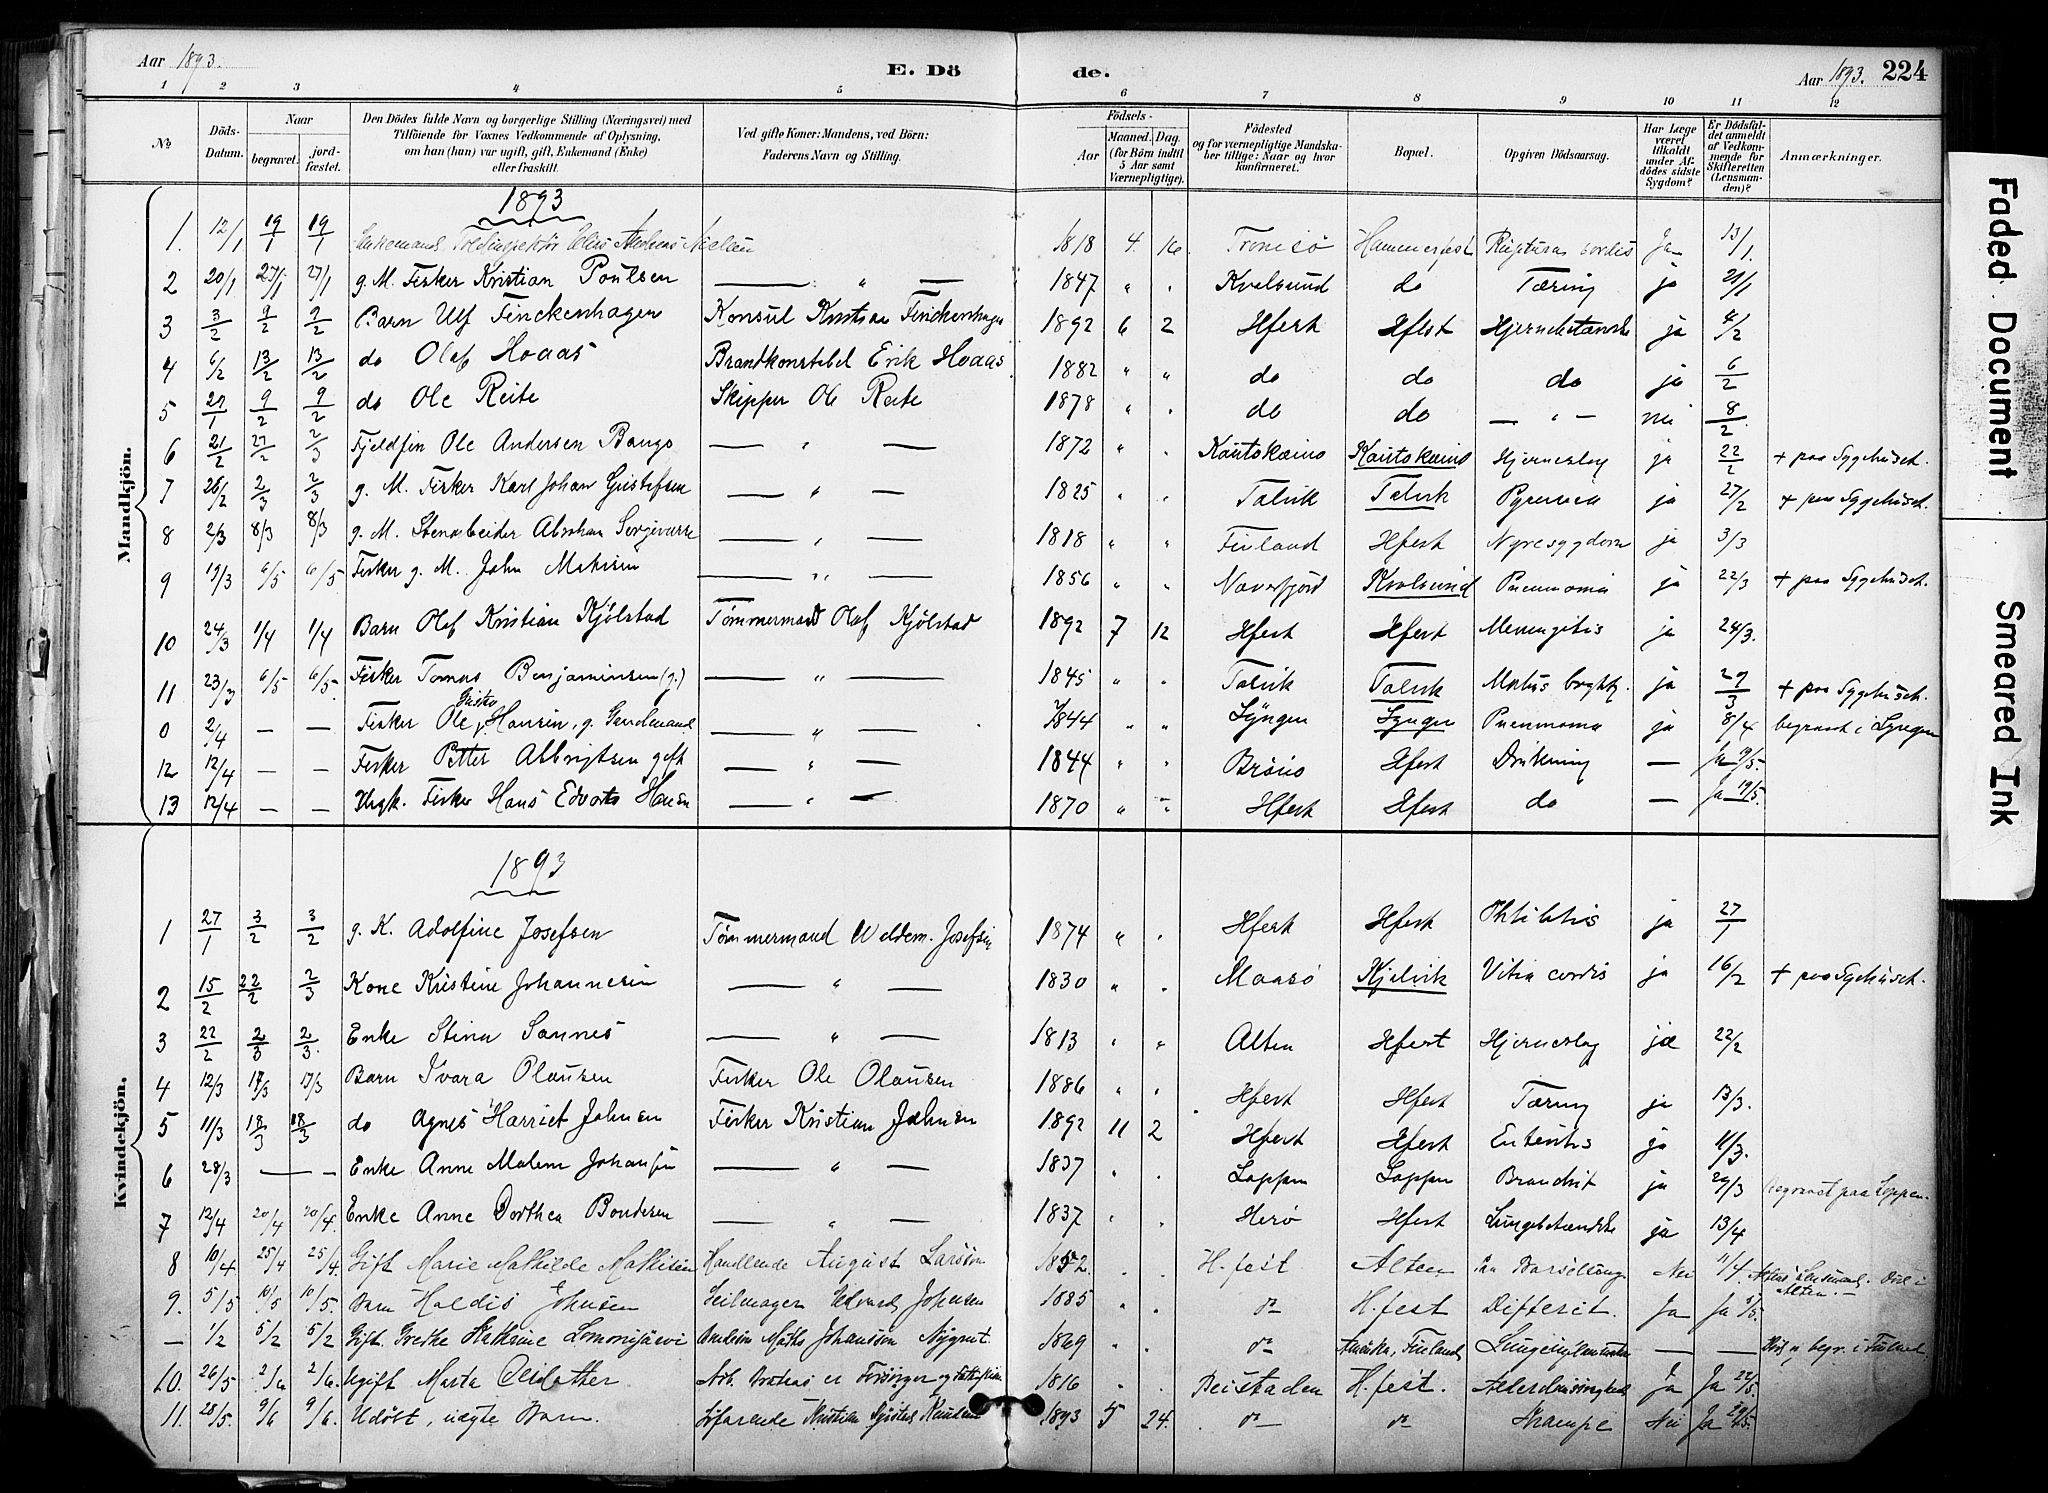 Aar 1893. E. Dö de. Aar 1893. 224
1 2 3 4 5 6 7 8 9 10 11 12
№ Döds-Datum. Naar begravet. jord-fæstet. Den Dödes fulde Navn og borgerlige Stilling (Næringsvei) med Tilföiende for Voxnes Vedkommende af Oplysning, om han (hun) var ugift, gift, Enkemand (Enke) eller fraskilt. Ved gifte Koner: Mandens, ved Börn: Faderens Navn og Stilling. Födsels- Aar Maaned. Dag. (for Börn indtil 5 Aar samt Værnepligtige). Födested og for værnepligtige Mandskaber tillige: Naar og hvor konfirmeret. Bopæl. Opgiven Dödsaarsag. Har Læge været tilkaldt under Afdödes sidste Sygdom? Er Dödsfaldet anmeldt af Vedkommende for Skifteretten (Lensmanden)? Anmærkninger.
Mandkjön.
1893
1. 12/1 19/1 19/1 Enkemand Toldinspektör Andreas Nielsen 1818 4 16 Tromsö Hammerfest Ruptura cordis Ja 13/1
2 20/1 27/1 27/1 g. M. Fisker Kristian Poulsen — " — 1847 " " Kvalsund do Tæring ja 21/1
3 3/2 9/2 9/2 Barn Ulf Finckenhagen Konsul Kristian Finckenhagen 1892 6 2 Hfest Hfest ja 4/2
4 6/2 13/2 13/2 do Olaf Hoaas Brandkonstabel Erik Hoaas 1882 " " do do do ja 6/2
5 27/1 9/2 9/2 do Ole Reite Skipper Ole Reite 1878 " " do do — " — nei 8/2
6 21/2 27/2 2/3 Fjeldfin Ole Andersen Bango — " — 1872 " " Kautokeino Kautokeino Hjerneslag ja 22/2 + paa Sygehuset.
7 26/2 2/3 2/3 g. M. Fisker Karl Johan Gustafsen — " — 1825 " " Talvik Talvik ja 27/2 + paa Sygehuset.
8 2/3 8/3 8/3 g. M. Stenarbeider Abraham — " — 1818 " " Finland Hfest Nyresygdom ja 3/3
9 19/3 6/5 6/5 Fisker g. M. John Mathisen — " — 1856 " " Kvalsund Pneumonia ja 22/3 + paa Sygehuset.
10 24/3 1/4 1/4 Barn Olaf Kristian Kjölstad Tömmermand Olaf Kjölstad 1892 7 12 Hfest Hfest Meningitis ja 24/3.
11 23/3 6/5 6/5. Fisker Tomas Benjaminsen (g.) — " — 1845 " " Talvik Talvik Morbus ja 29/3 + paa Sygehuset.
0 2/4 — — Fisker Ole Hansen, g. — " — 1844 " " Lyngen Lyngen Pneumonia ja 8/4 begravet i Lyngen
12 12/4 — — Fisker Petter Albrigtsen gift — " — 1844 " " Hfest Drukning — Ja 9/5.
13 12/4 — — Ungk. Fisker Hans Edvart Hansen — " — 1870 " " Hfest Hfest do — Ja 19/5.
Kvindekjön.
1893
1 27/1 3/2 3/2 g. K. Adolfine Josefsen Tömmermand Valdem. Josefsen 1874 " " Hfest Hfest ja 27/1
2 15/2 22/2 2/3 Kone Kristine Johannesen — " — 1830 " " Maasö Kjelvik Vitia cordis ja 16/2 + paa Sygehuset.
3 22/2 2/3 2/3. Enke Stina Sannes — " — 1813 " " Alten Hfest Hjerneslag ja 22/2
4 12/3 17/3 17/3 Barn Ivara Olausen Fisker Ole Olausen 1886 " " Hfest Hfest Tæring ja 13/3.
5 11/3 18/3 18/3 do Agnes Harriet Johnsen Fisker Kristian Johnsen 1892 11 2 Hfest Hfest Enteritis ja 11/3.
6 28/3 — — Enke Anne Malene Johansen — " — 1837 " " Loppen Loppen ja 29/3 Begravet paa Loppen.
7 12/4 20/4 20/4. Enke Anne Dorthea Bondesen — " — 1837 " " Herö Hfest ja 13/4
8 10/4 25/4 25/4. Gift Marie Mathilde Mathisen Handlende August Larsson 1852. " " H.fest Alten Paa Barselseng Nei 11/4. Altens Lensmand. Död i Alten. —
9. 5/5 10/5 10/5. Barn Haldis Johnsen Seilmager Edvard Johnsen 1885 " " do H.fest Differit. Ja Ja 5/5.
— 1/2 5/2 5/2 Gift. Grethe Kathrine Johansson 1869 " do Amerika, Finland — — begr. i
10. 26/5 2/6 2/6. Ugift Marta Arb. er Forsörger og 1816 " " Beistaden H.fest. Alderdomssvaghed Ja Ja 22/5.
11. 28/5. 9/6 9/6. Udöbt, uægte Barn. Söfarende Kristian 1893 5 24. do do Krampe Nei Ja 29/5.
Faded Document
Smeared Ink